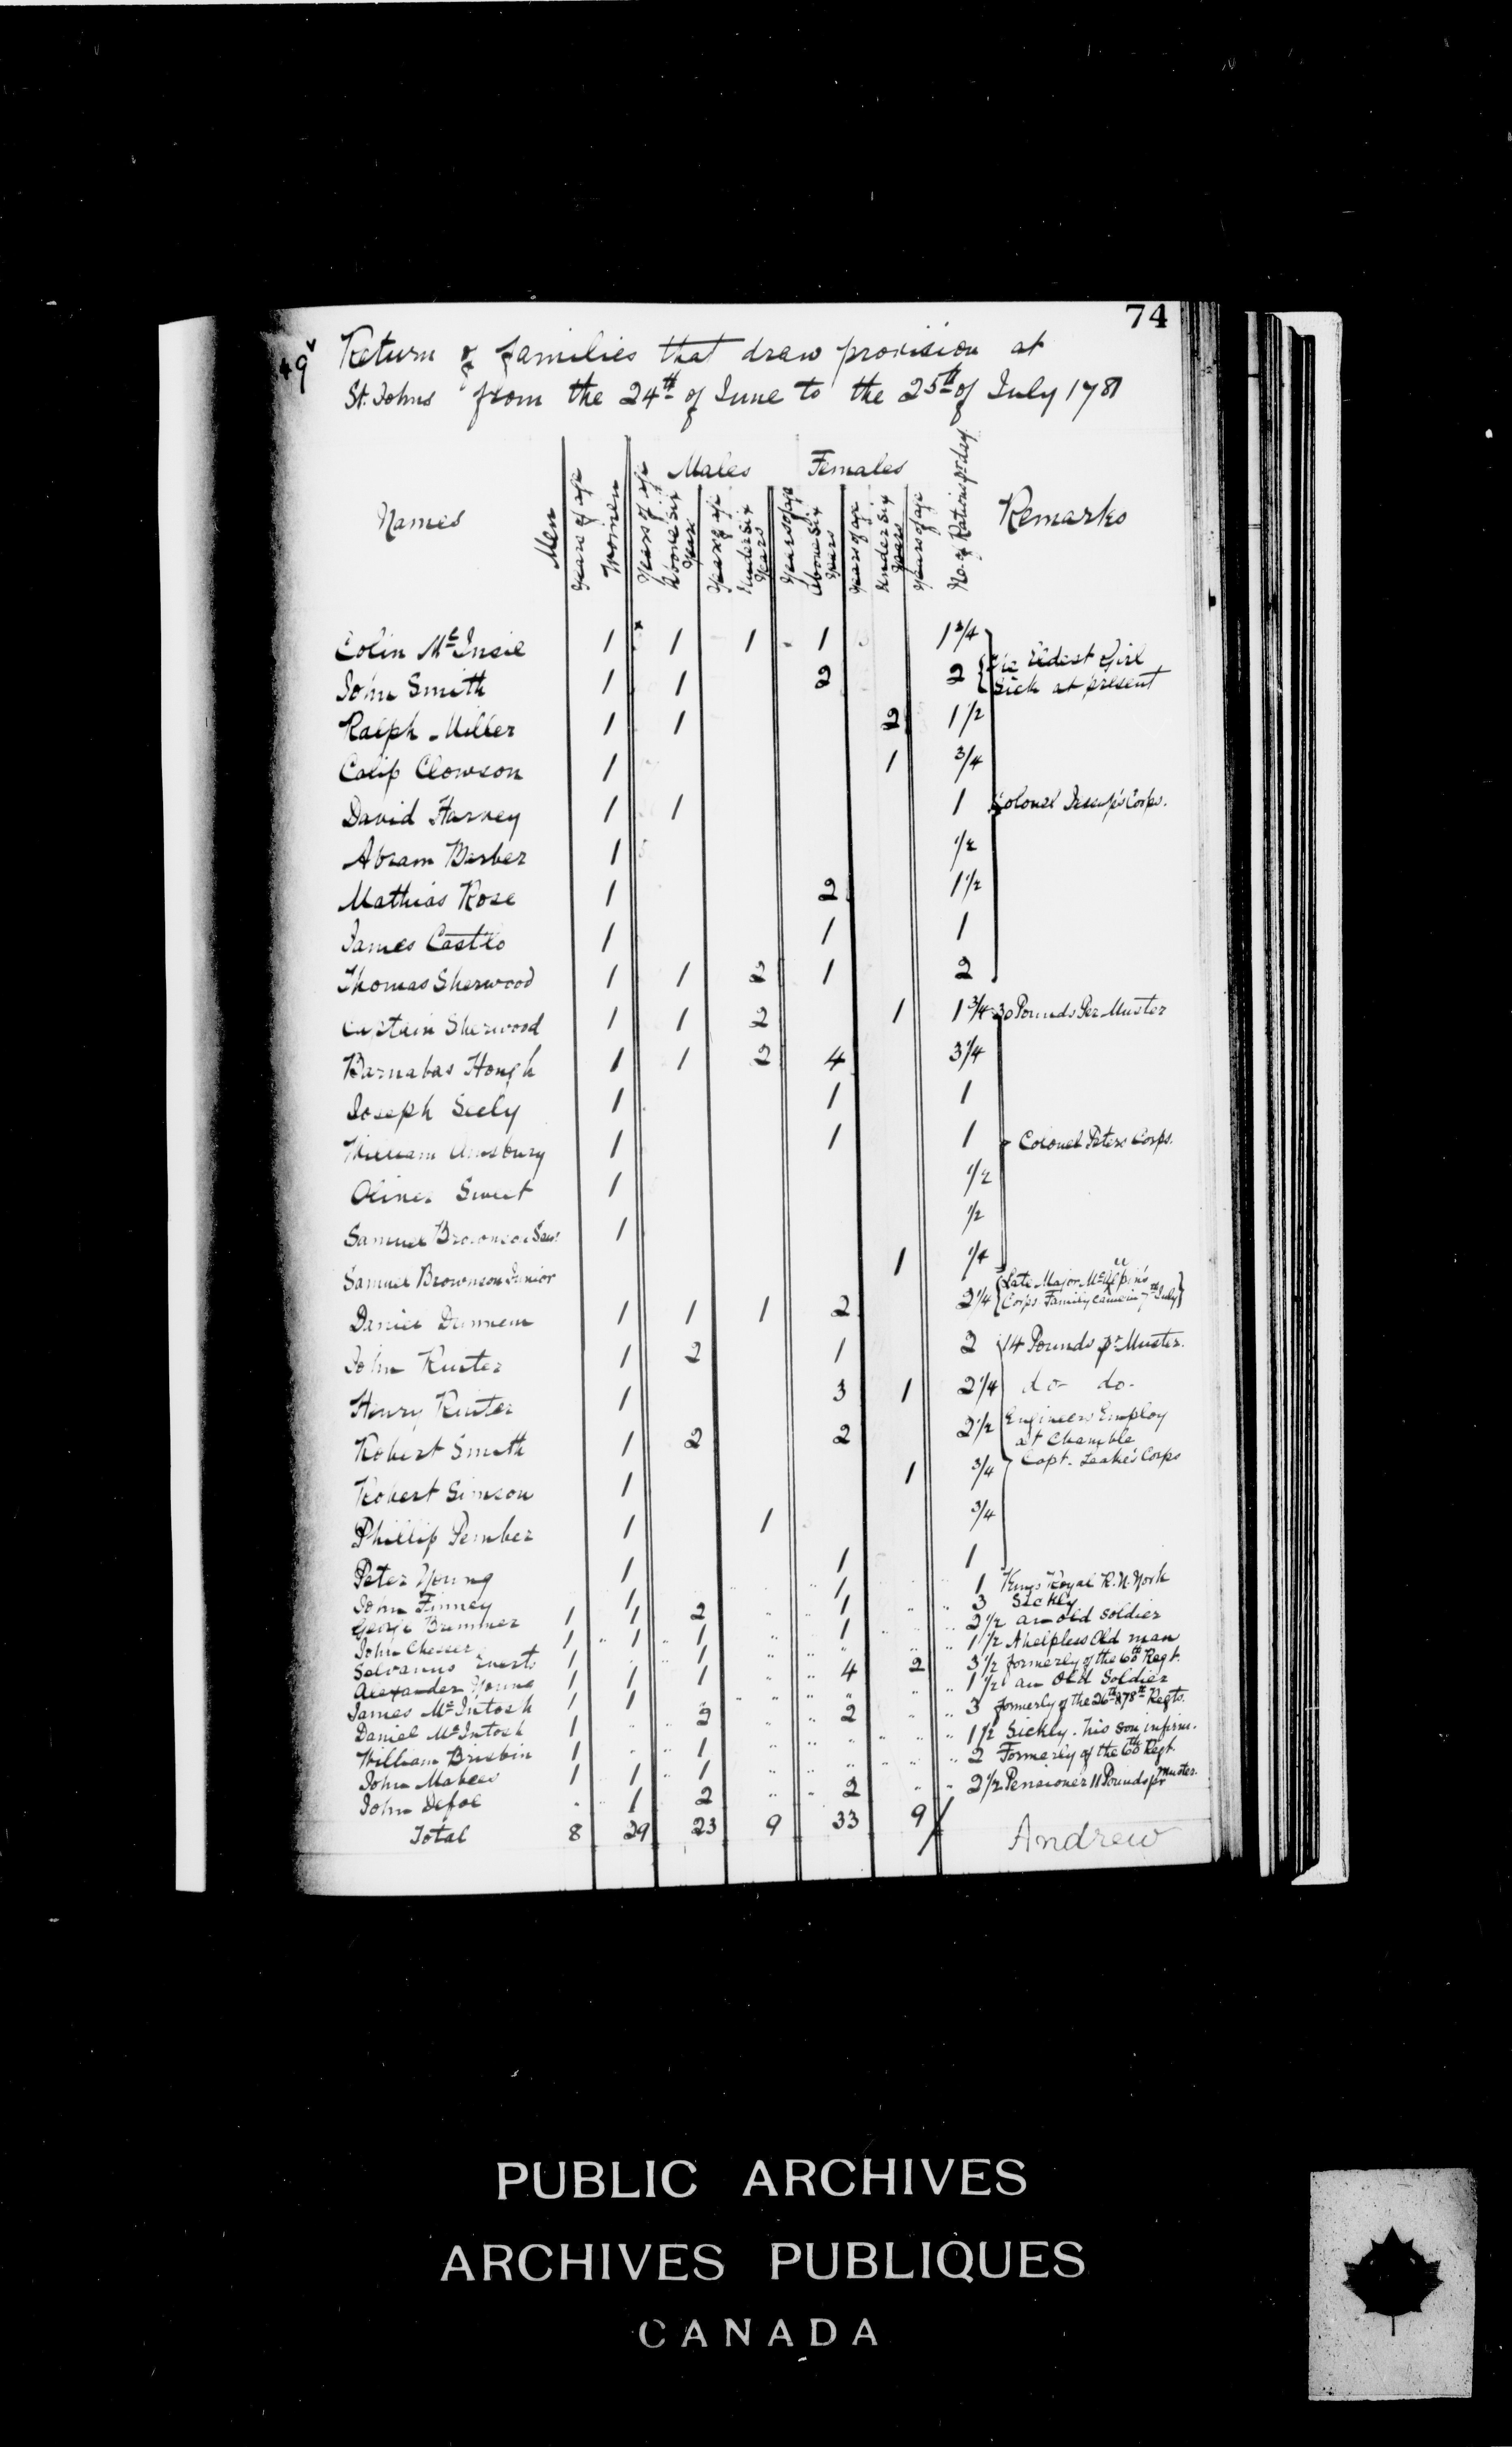 74
49v
Return of families that draw provision at
St. Johns from the 24th of June to the 25th of July 1781
Names
Men
Years of age
Women
Years of age
Males
Above Six Years
Years of age
Under Six Years
Years of age
Females
Above Six Years
Years of age
Under Six Years
Years of age
No. of Rations pr day
Remarks
Colin Mc 1 1 1 1 1 3/4
John Smith 1 1 2 2 Eldest Girl
Sick at present
Ralph Miller 1 1 2 1 1/2
Calip Clowson 1 1 3/4
David Harvey 1 1 1 Colonel Jessup's Corps.
Abram Barber 1 1/2
Mathias Rose 1 2 1 1/2
James Castlo 1 1 1
Thomas Sherwood 1 1 2 1 2
Captain Sherwood 1 1 2 1 1 3/4 30 Pounds Per Muster
Barnabas Hough 1 1 2 4 3 1/4
Joseph Seely 1 1 1
William Amsbury 1 1 1 Colonel Peters Corps.
Oliver Sweet 1 1/2
Samuel Brownson Senr 1 1/2
Samuel Brownson Junior 1 1/4
Daniel 1 1 1 2 2 1/4 Late Major McAlpin's
Corps. Family came in 7th July
John Ruiter 1 2 1 2 14 Pounds pr Muster.
Henry Ruiter 1 3 1 2 1/4 do- do-
Robert Smith 1 2 2 2 1/2 Engineers Employ
at Chamble
Robert Simson 1 1 3/4 Capt. Leake's Corps
Phillip Pember 1 1 3/4
Peter Young 1 1 1
John Finney 1 1 1 Kings Royal R. N. York
George Brimmer 1 1 2 1 3 Sickly
John 1 1 1 1 2 1/2 an old soldier
Selvanus Everts 1 1 1/2 A helpless Old man
Alexander Young 1 1 1 4 2 3 1/2 formerly of the 60th Regt.
James McIntosh 1 1 1 1/2 an Old Soldier
Daniel McIntosh 1 2 2 3 formerly of the 26th & 78th Regts.
William Brisbin 1 1 1 1/2 Sickly. his son infirm.
John Mabees 1 1 1 2 Formerly of the 60th Regt
John Defoe 1 2 2 2 1/2 Pensioner 11 Pounds pr Muster.
Total 8 29 23 9 33 9
Andrew
PUBLIC ARCHIVES
ARCHIVES PUBLIQUES
CANADA